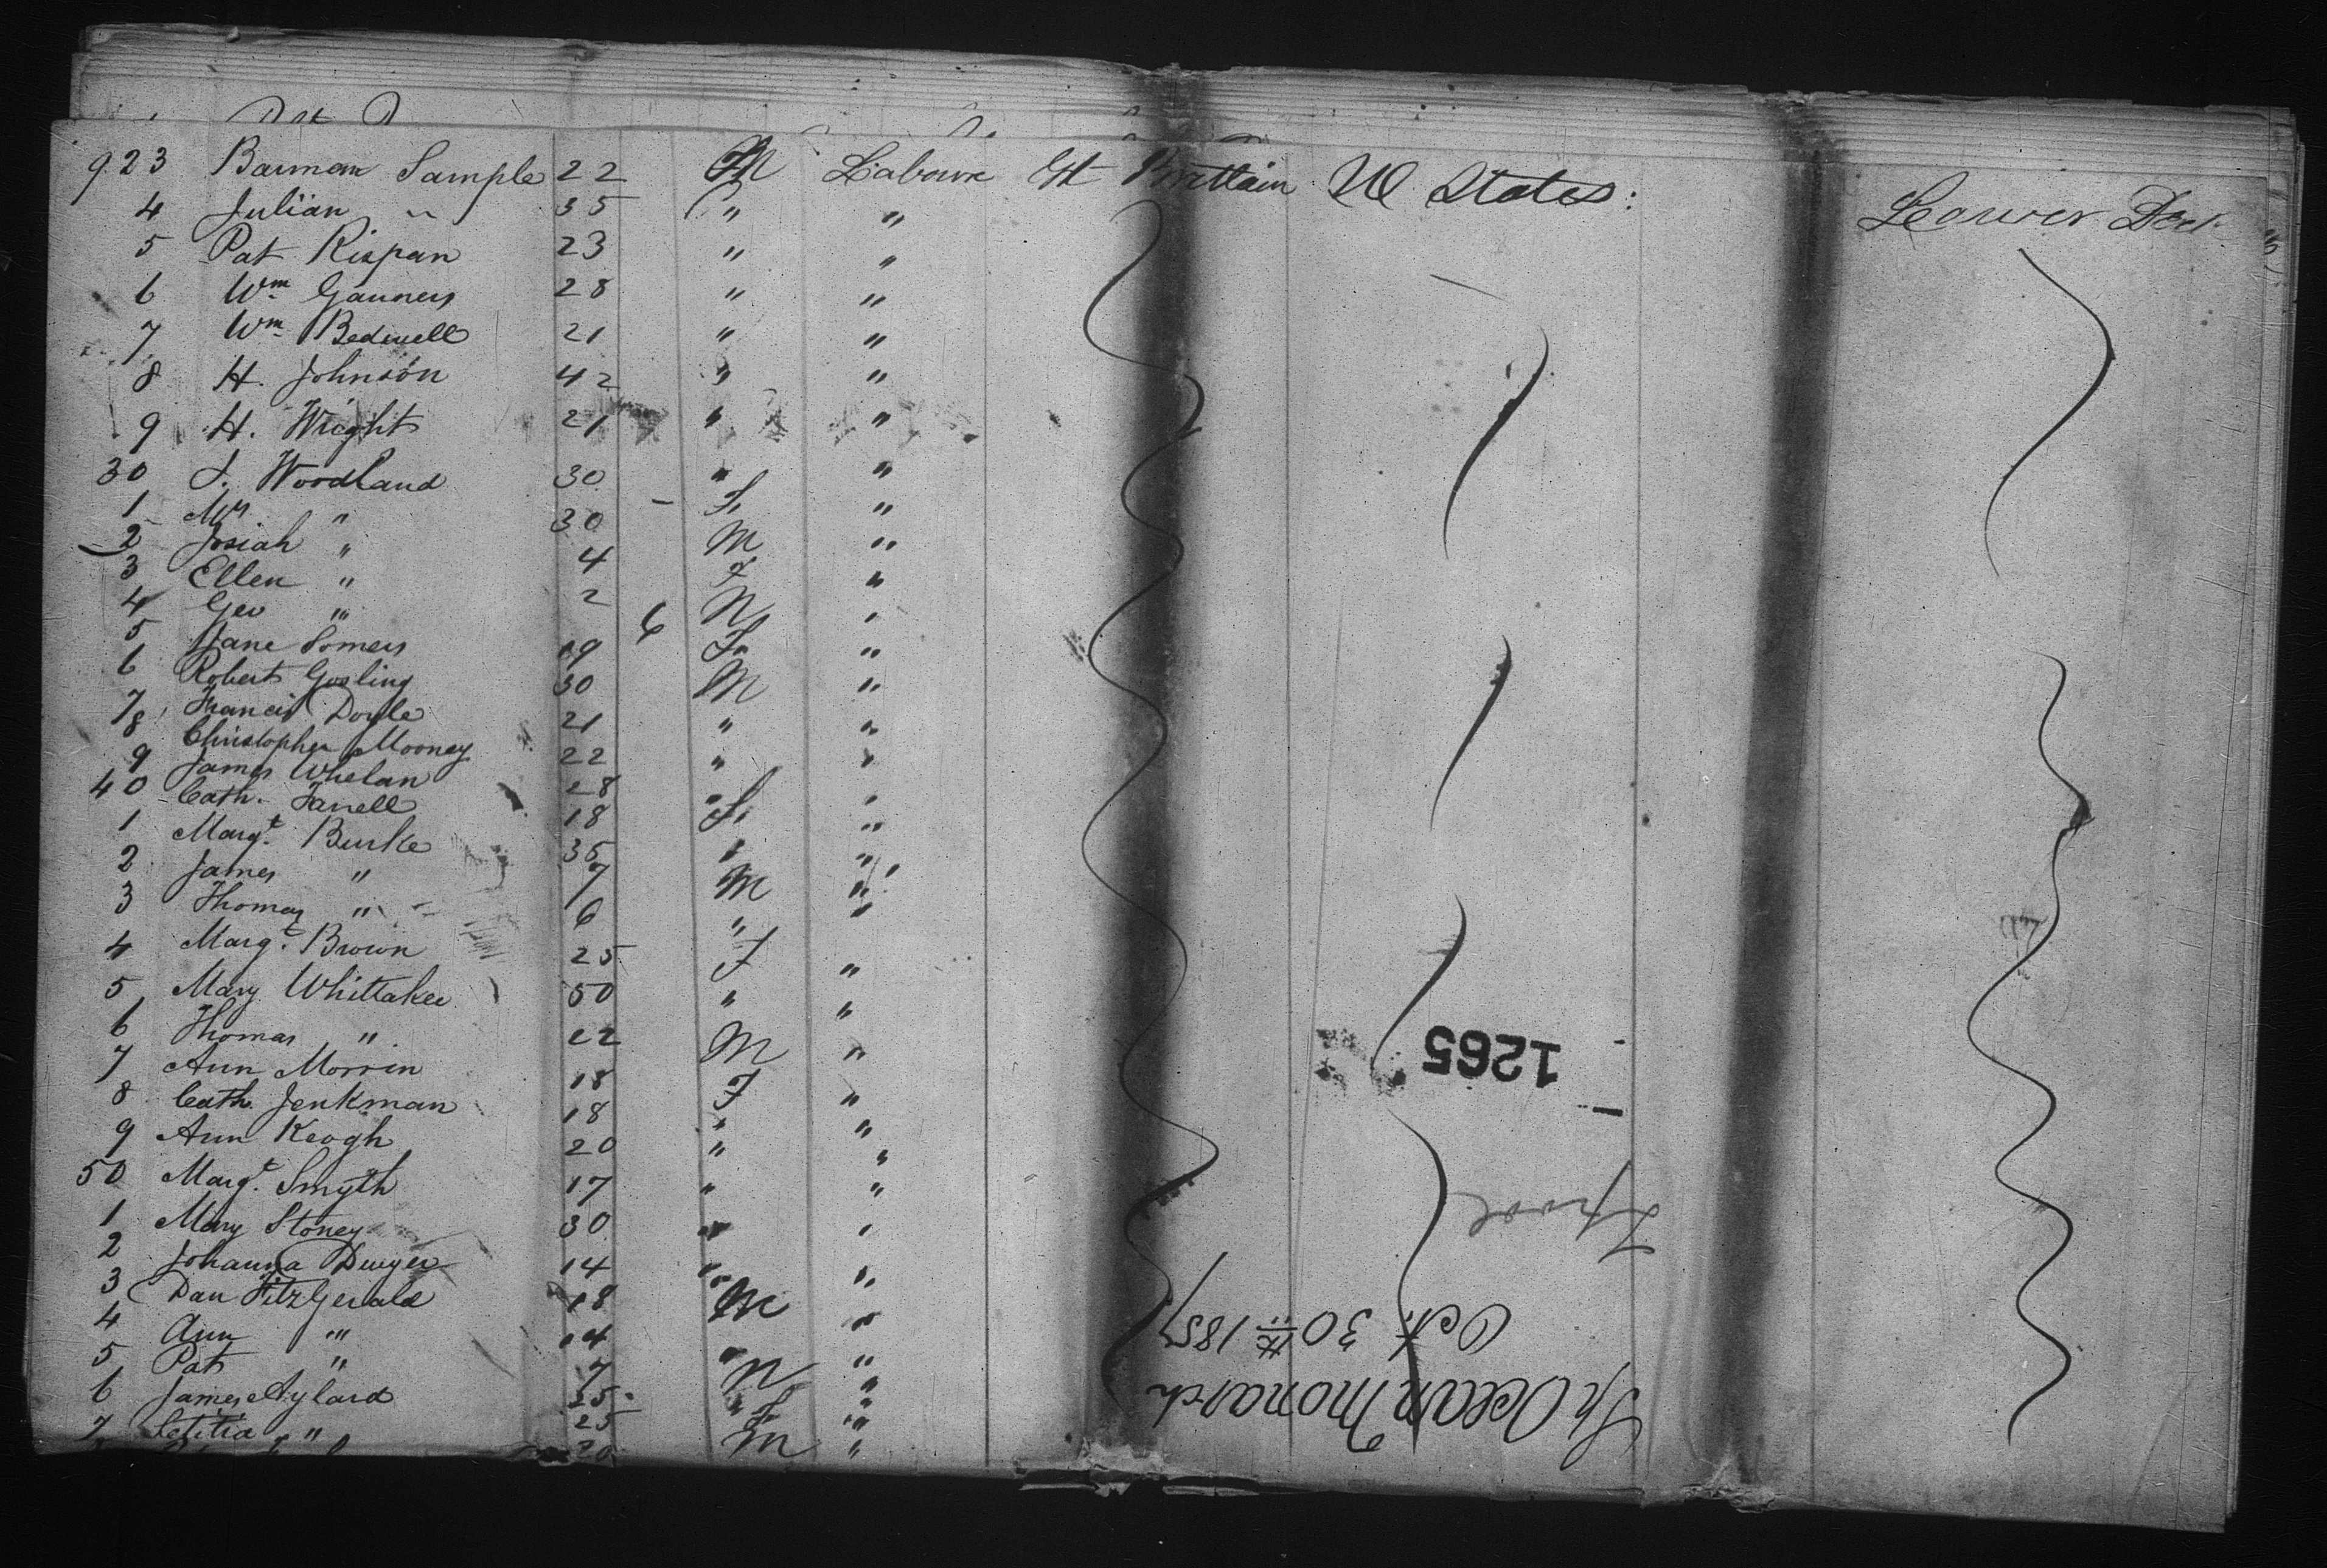 923 Barman Sample 22 M Laboure Gt Brittain U States: Lower Deck
4 Julian " 35 " "
5 Pat Rispan 23 " "
6 Wm Gauners 28 " "
7 Wm Bedwell 21 " "
8 H. Johnson 42 " "
9 H. Wright 21 " "
30 J. Woodland 30 " "
1 Mrs " 30 F. "
2 Josiah " 4 M "
3 Ellen " 2 F "
4 Geo " 6 M "
5 Jane Somers 19 F. "
6 Robert Gosling 30 M "
7 Francis Doyle 21 " "
8 Christopher Mooney 22 " "
9 James Whelan 28 " "
40 Cath. Farrell 18 F. "
1 Margt. Burke 35 " "
2 James " 7 M "
3 Thomas " 6 " "
4 Margt. Brown 25 F "
5 Mary Whittaker 50 " "
6 Thomas " 22 M "
7 Ann Morrin 18 F "
8 Cath. Jenkman 18 " "
9 Ann Keogh 20 " "
50 Margt. Smyth 17 " "
1 Mary Stoney 30 " "
2 Johanna Dwyer 14 " "
3 Dan FitzGerald 18 M "
4 Ann " 14 " "
5 Pat " 7 M "
6 James Aylard 25 " "
7 Letitia " 25 F. "
20 M "
Sh Ocean Monarch
Oct. 30th 1857
Lpool
1265